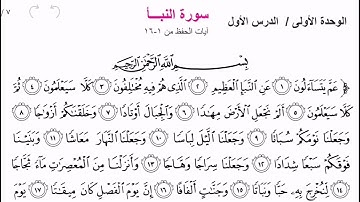 الوحدة الأولى / الدرس الأول
سورة النبأ
آيات الحفظ من ١-١٦
٧ /
بِسْمِ اللَّهِ الرَّحْمَٰنِ الرَّحِيمِ
عَمَّ يَتَسَاءَلُونَ ١ عَنِ النَّبَإِ الْعَظِيمِ ٢ الَّذِي هُمْ فِيهِ مُخْتَلِفُونَ ٣ كَلَّا سَيَعْلَمُونَ ٤ ثُمَّ
كَلَّا سَيَعْلَمُونَ ٥ أَلَمْ نَجْعَلِ الْأَرْضَ مِهَادًا ٦ وَالْجِبَالَ أَوْتَادًا ٧ وَخَلَقْنَاكُمْ أَزْوَاجًا ٨
وَجَعَلْنَا نَوْمَكُمْ سُبَاتًا ٩ وَجَعَلْنَا اللَّيْلَ لِبَاسًا ١٠ وَجَعَلْنَا النَّهَارَ مَعَاشًا ١١ وَبَنَيْنَا
فَوْقَكُمْ سَبْعًا شِدَادًا ١٢ وَجَعَلْنَا سِرَاجًا وَهَّاجًا ١٣ وَأَنزَلْنَا مِنَ الْمُعْصِرَاتِ مَاءً ثَجَّاجًا
١٤ لِّنُخْرِجَ بِهِ حَبًّا وَنَبَاتًا ١٥ وَجَنَّاتٍ أَلْفَافًا ١٦ إِنَّ يَوْمَ الْفَصْلِ كَانَ مِيقَاتًا ١٧ يَوْمَ